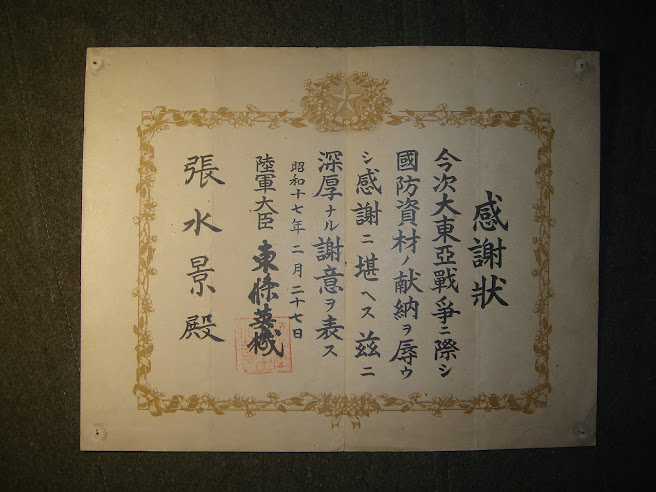 感謝狀
今次大東亞戰爭ニ際シ
國防資材ノ献納ヲ辱ウ
シ感謝ニ堪ヘス茲ニ
深厚ナル謝意ヲ表ス
昭和十七年二月二十七日
陸軍大臣 東條英機
張水景殿